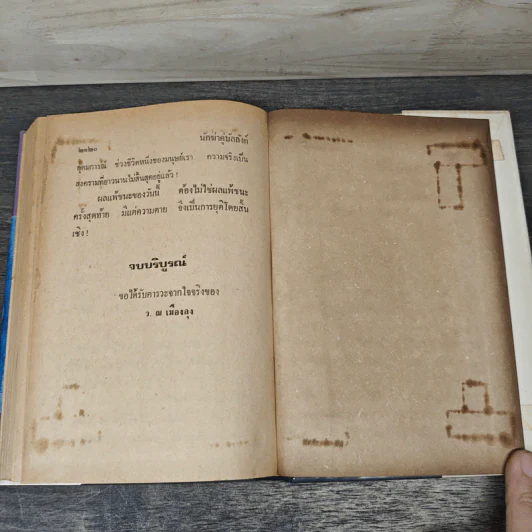 ๒๑๒๐
นักฆ่าคู่บัลลังก์
อุดมการณ์ ช่วงชีวิตหนึ่งของมนุษย์เรา ความจริงเป็น
สงครามที่ยาวนานไม่สิ้นสุดอยู่แล้ว !
ผลแพ้ชนะของวันนี้ ต้องไม่ใช่ผลแพ้ชนะ
ครั้งสุดท้าย มีแต่ความตาย จึงเป็นการยุติโดยสิ้น
เชิง !
จบบริบูรณ์
ขอได้รับคารวะจากใจจริงของ
ว. ณ เมืองลุง